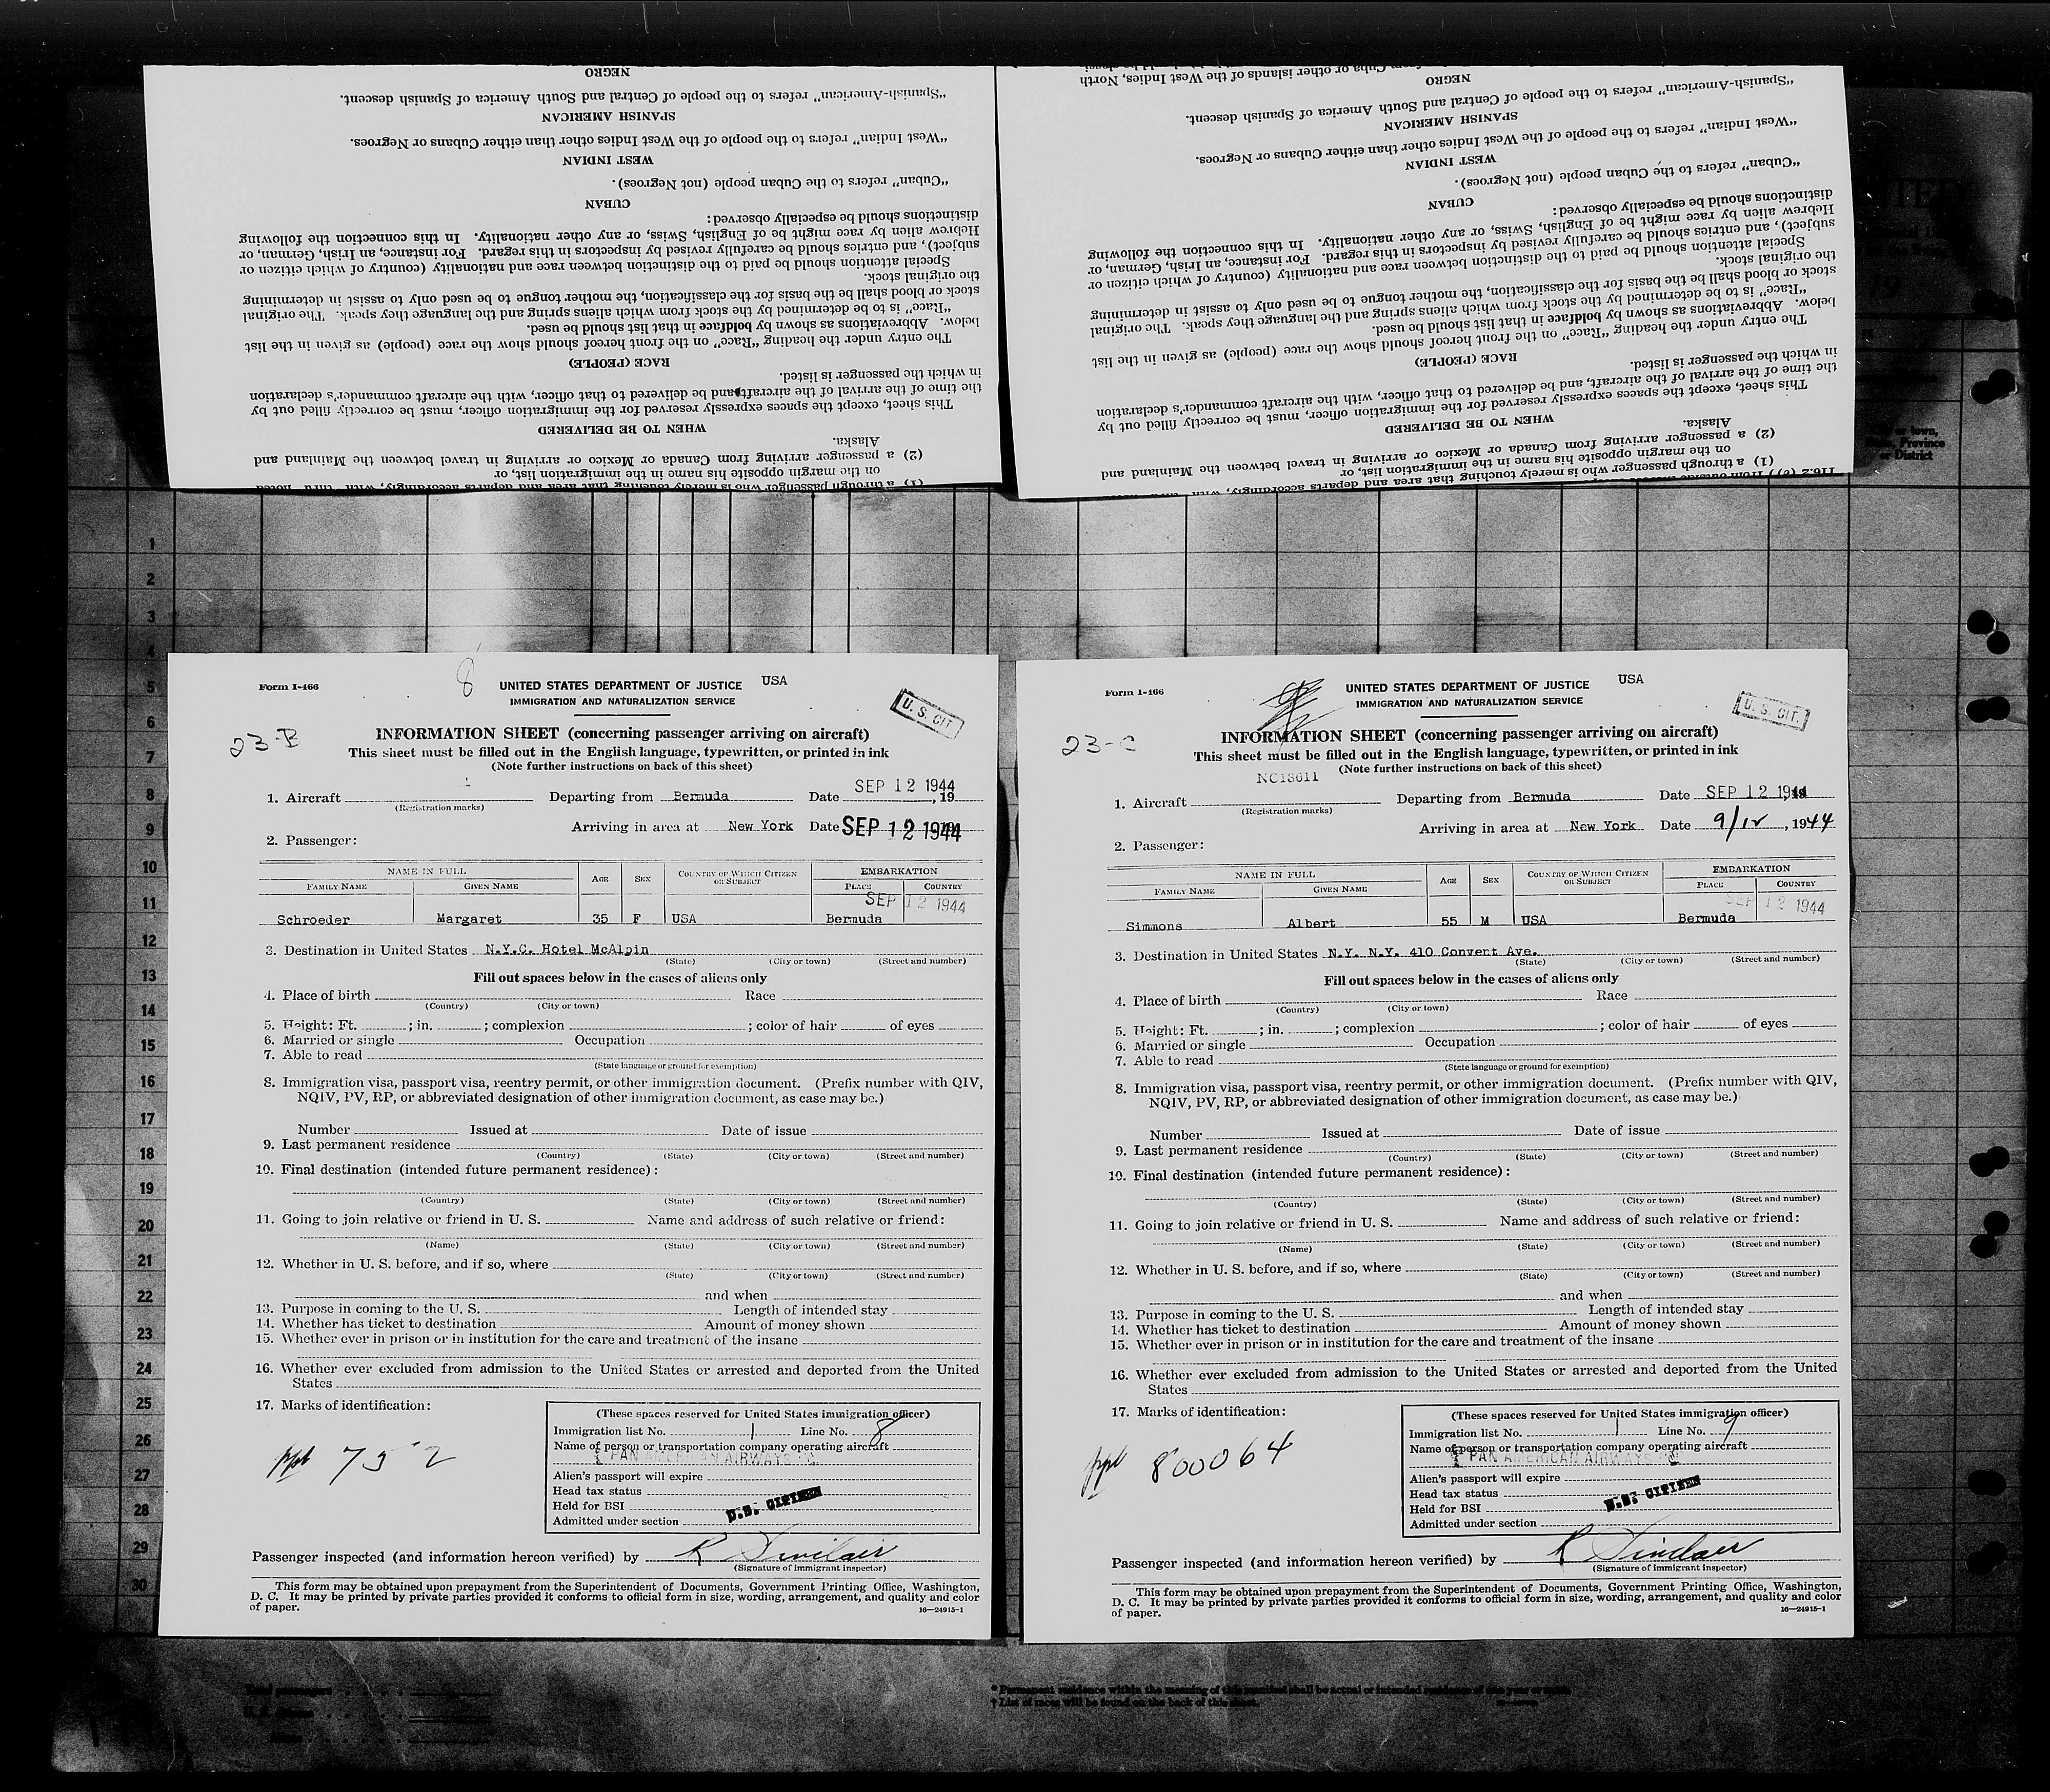 NEGRO
"Spanish-American" refers to the people of Central and South America of Spanish descent.
SPANISH AMERICAN
"West Indian" refers to the people of the West Indies other than either Cubans or Negroes.
WEST INDIAN
"Cuban" refers to the Cuban people (not Negroes).
CUBAN
distinctions should be especially observed:
Hebrew alien by race might be of English, Swiss, or any other nationality. In this connection the following
subject), and entries should be carefully revised by inspectors in this regard. For instance, an Irish, German, or
Special attention should be paid to the distinction between race and nationality (country of which citizen or
the original stock.
stock or blood shall be the basis for the classification, the mother tongue to be used only to assist in determining
"Race" is to be determined by the stock from which aliens spring and the language they speak. The original
below. Abbreviations as shown by boldface in that list should be used.
The entry under the heading "Race" on the front hereof should show the race (people) as given in the list
RACE (PEOPLE)
in which the passenger is listed.
the time of the arrival of the aircraft, and be delivered to that officer, with the aircraft commander's declaration
This sheet, except the spaces expressly reserved for the immigration officer, must be correctly filled out by
WHEN TO BE DELIVERED
Alaska.
(2) a passenger arriving from Canada or Mexico or arriving in travel between the Mainland and
on the margin opposite his name in the immigration list, or
(1) a through passenger who is merely touching that area and departs accordingly, with "thru" noted
Cuba or other islands of the West Indies, North
NEGRO
"Spanish-American" refers to the people of Central and South America of Spanish descent.
SPANISH AMERICAN
"West Indian" refers to the people of the West Indies other than either Cubans or Negroes.
WEST INDIAN
"Cuban" refers to the Cuban people (not Negroes).
CUBAN
distinctions should be especially observed:
Hebrew alien by race might be of English, Swiss, or any other nationality. In this connection the following
subject), and entries should be carefully revised by inspectors in this regard. For instance, an Irish, German, or
Special attention should be paid to the distinction between race and nationality (country of which citizen or
the original stock.
stock or blood shall be the basis for the classification, the mother tongue to be used only to assist in determining
"Race" is to be determined by the stock from which aliens spring and the language they speak. The original
below. Abbreviations as shown by boldface in that list should be used.
The entry under the heading "Race" on the front hereof should show the race (people) as given in the list
RACE (PEOPLE)
in which the passenger is listed.
the time of the arrival of the aircraft, and be delivered to that officer, with the aircraft commander's declaration
This sheet, except the spaces expressly reserved for the immigration officer, must be correctly filled out by
WHEN TO BE DELIVERED
Alaska.
(2) a passenger arriving from Canada or Mexico or arriving in travel between the Mainland and
on the margin opposite his name in the immigration list, or
(1) a through passenger who is merely touching that area and departs accordingly, with
or town,
Province
or District
1
2
3
4
5
6
7
8
9
10
11
12
13
14
15
16
17
18
19
20
21
22
23
24
25
26
27
28
29
30
Form I-466
8
UNITED STATES DEPARTMENT OF JUSTICE USA
IMMIGRATION AND NATURALIZATION SERVICE
U. S. CIT.
23-B
INFORMATION SHEET (concerning passenger arriving on aircraft)
This sheet must be filled out in the English language, typewritten, or printed in ink
(Note further instructions on back of this sheet)
1. Aircraft Departing from Bermuda Date SEP 12 1944, 19
(Registration marks)
Arriving in area at New York Date SEP 12 1944
2. Passenger:
NAME IN FULL AGE SEX COUNTRY OF WHICH CITIZEN OR SUBJECT EMBARKATION
FAMILY NAME GIVEN NAME PLACE COUNTRY
SEP 12 1944
Schroeder Margaret 35 F USA Bermuda
3. Destination in United States N.Y.C. Hotel McAlpin
(State) (City or town) (Street and number)
Fill out spaces below in the cases of aliens only
4. Place of birth Race
(Country) (City or town)
5. Height: Ft. ; in. ; complexion ; color of hair of eyes
6. Married or single Occupation
7. Able to read
(State language or ground for exemption)
8. Immigration visa, passport visa, reentry permit, or other immigration document. (Prefix number with QIV,
NQIV, PV, RP, or abbreviated designation of other immigration document, as case may be.)
Number Issued at Date of issue
9. Last permanent residence
(Country) (State) (City or town) (Street and number)
10. Final destination (intended future permanent residence):
(Country) (State) (City or town) (Street and number)
11. Going to join relative or friend in U. S. Name and address of such relative or friend:
(Name) (State) (City or town) (Street and number)
12. Whether in U. S. before, and if so, where
(State) (City or town) (Street and number)
and when
13. Purpose in coming to the U. S. Length of intended stay
14. Whether has ticket to destination Amount of money shown
15. Whether ever in prison or in institution for the care and treatment of the insane
16. Whether ever excluded from admission to the United States or arrested and deported from the United
States
17. Marks of identification:
ppt 752
(These spaces reserved for United States immigration officer)
Immigration list No. 1 Line No. 8
Name of person or transportation company operating aircraft
PAN AMERICAN AIRWAYS
Alien's passport will expire
Head tax status
Held for BSI
Admitted under section
U.S. CITIZEN
Passenger inspected (and information hereon verified) by R Sinclair
(Signature of immigrant inspector)
This form may be obtained upon prepayment from the Superintendent of Documents, Government Printing Office, Washington,
D. C. It may be printed by private parties provided it conforms to official form in size, wording, arrangement, and quality and color
of paper.
16—24915-1
Form I-466
UNITED STATES DEPARTMENT OF JUSTICE USA
IMMIGRATION AND NATURALIZATION SERVICE
U. S. CIT.
23-C
INFORMATION SHEET (concerning passenger arriving on aircraft)
This sheet must be filled out in the English language, typewritten, or printed in ink
(Note further instructions on back of this sheet)
NC18611
1. Aircraft Departing from Bermuda Date SEP 12 1944
(Registration marks)
Arriving in area at New York Date 9/12, 1944
2. Passenger:
NAME IN FULL AGE SEX COUNTRY OF WHICH CITIZEN OR SUBJECT EMBARKATION
FAMILY NAME GIVEN NAME PLACE COUNTRY
SEP 12 1944
Simmons Albert 55 M USA Bermuda
3. Destination in United States N.Y. N.Y. 410 Convent Ave.
(State) (City or town) (Street and number)
Fill out spaces below in the cases of aliens only
4. Place of birth Race
(Country) (City or town)
5. Height: Ft. ; in. ; complexion ; color of hair of eyes
6. Married or single Occupation
7. Able to read
(State language or ground for exemption)
8. Immigration visa, passport visa, reentry permit, or other immigration document. (Prefix number with QIV,
NQIV, PV, RP, or abbreviated designation of other immigration document, as case may be.)
Number Issued at Date of issue
9. Last permanent residence
(Country) (State) (City or town) (Street and number)
10. Final destination (intended future permanent residence):
(Country) (State) (City or town) (Street and number)
11. Going to join relative or friend in U. S. Name and address of such relative or friend:
(Name) (State) (City or town) (Street and number)
12. Whether in U. S. before, and if so, where
(State) (City or town) (Street and number)
and when
13. Purpose in coming to the U. S. Length of intended stay
14. Whether has ticket to destination Amount of money shown
15. Whether ever in prison or in institution for the care and treatment of the insane
16. Whether ever excluded from admission to the United States or arrested and deported from the United
States
17. Marks of identification:
ppt 800064
(These spaces reserved for United States immigration officer)
Immigration list No. 1 Line No. 9
Name of person or transportation company operating aircraft
PAN AMERICAN AIRWAYS
Alien's passport will expire
Head tax status
Held for BSI
Admitted under section
U.S. CITIZEN
Passenger inspected (and information hereon verified) by R Sinclair
(Signature of immigrant inspector)
This form may be obtained upon prepayment from the Superintendent of Documents, Government Printing Office, Washington,
D. C. It may be printed by private parties provided it conforms to official form in size, wording, arrangement, and quality and color
of paper.
16—24915-1
* Permanent residence within the meaning of this manifest shall be actual or intended residence of one year or more.
† List of races will be found on the back of this sheet.